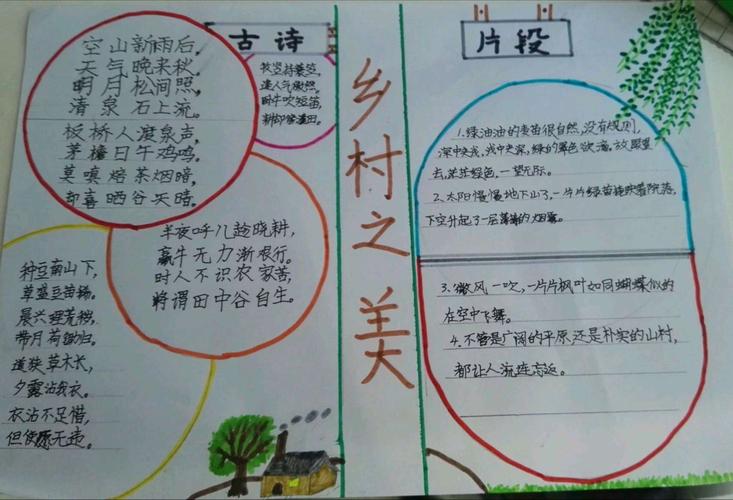 古诗
空山新雨后，
天气晚来秋。
明月松间照，
清泉石上流。
板桥人渡泉声，
茅檐日午鸡鸣。
莫嗔焙茶烟暗，
却喜晒谷天晴。
牧竖持蓑笠，
逢人气傲然。
卧牛吹短笛，
耕却傍溪田。
半夜呼儿趁晓耕，
羸牛无力渐艰行。
时人不识农家苦，
将谓田中谷自生。
种豆南山下，
草盛豆苗稀。
晨兴理荒秽，
带月荷锄归。
道狭草木长，
夕露沾我衣。
衣沾不足惜，
但使愿无违。
乡村之美
片段
1.绿油油的麦苗很自然，没有规则，
深中夹浅，浅中夹深，绿的翠色欲滴，放眼望
去，茫茫绿色，一望无际。
2、太阳慢慢地下山了，一片片绿苗辉映着院落，
下空升起了一层薄薄的烟雾。
3、微风一吹，一片片枫叶如同蝴蝶似的
在空中飞舞。
4、不管是广阔的平原，还是朴实的山村，
都让人流连忘返。